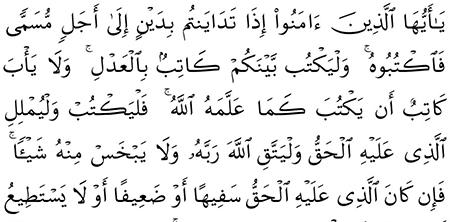 يَٰٓأَيُّهَا ٱلَّذِينَ ءَامَنُوٓا۟ إِذَا تَدَايَنتُم بِدَيْنٍ إِلَىٰٓ أَجَلٍ مُّسَمًّى
فَٱكْتُبُوهُ ۚ وَلْيَكْتُب بَّيْنَكُمْ كَاتِبٌۢ بِٱلْعَدْلِ ۚ وَلَا يَأْبَ
كَاتِبٌ أَن يَكْتُبَ كَمَا عَلَّمَهُ ٱللَّهُ ۚ فَلْيَكْتُبْ وَلْيُمْلِلِ
ٱلَّذِى عَلَيْهِ ٱلْحَقُّ وَلْيَتَّقِ ٱللَّهَ رَبَّهُۥ وَلَا يَبْخَسْ مِنْهُ شَيْـًٔا ۚ
فَإِن كَانَ ٱلَّذِى عَلَيْهِ ٱلْحَقُّ سَفِيهًا أَوْ ضَعِيفًا أَوْ لَا يَسْتَطِيعُ